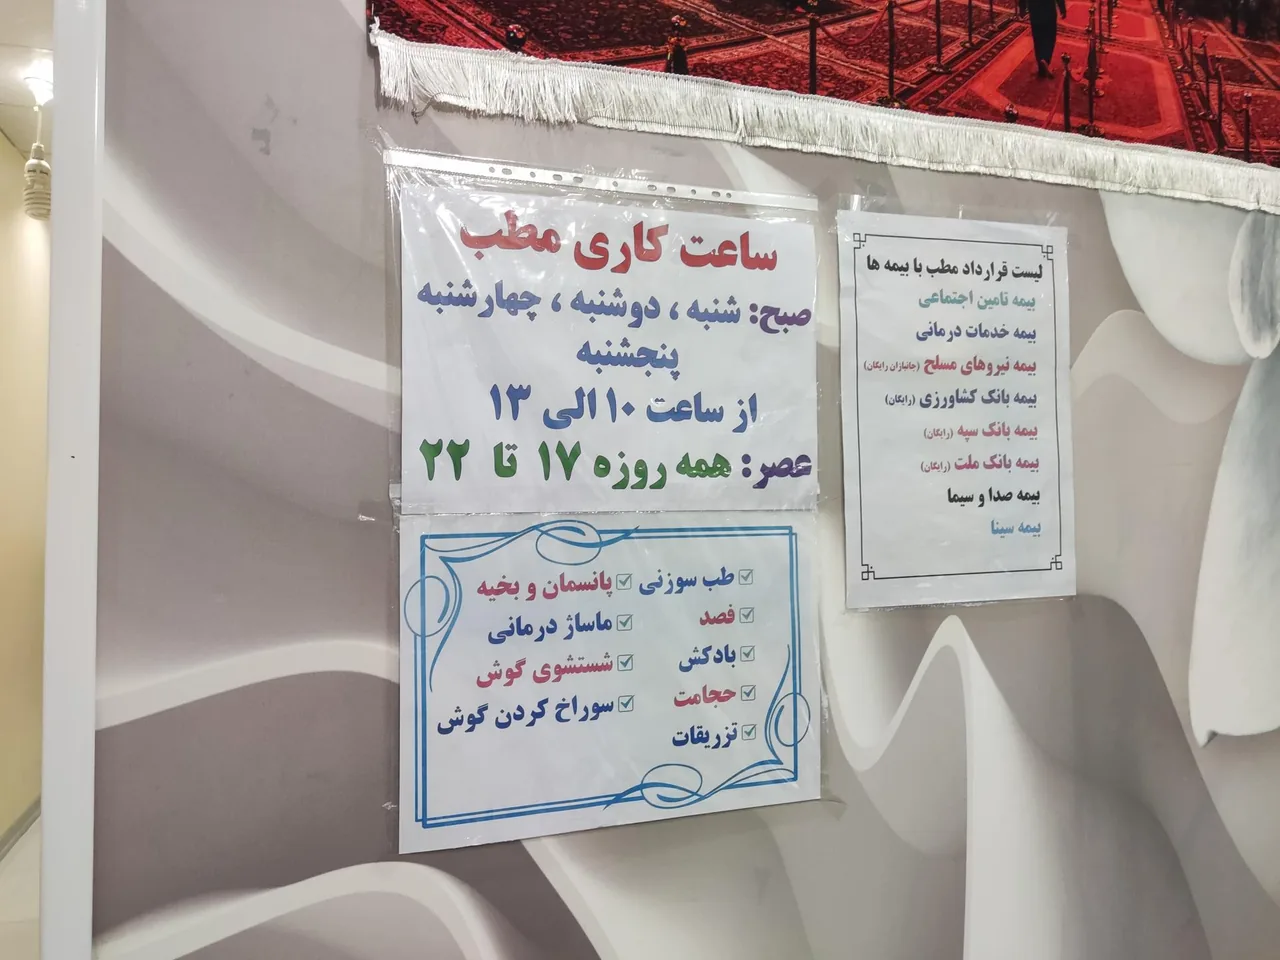 ساعت کاری مطب
صبح: شنبه ، دوشنبه ، چهارشنبه
پنجشنبه
از ساعت ۱۰ الی ۱۳
عصر: همه روزه ۱۷ تا ۲۲
لیست قرارداد مطب با بیمه ها
بیمه تامین اجتماعی
بیمه خدمات درمانی
بیمه نیروهای مسلح (جانبازان رایگان)
بیمه بانک کشاورزی (رایگان)
بیمه بانک سپه (رایگان)
بیمه بانک ملت (رایگان)
بیمه صدا و سیما
بیمه سینا
طب سوزنی
فصد
بادکش
حجامت
تزریقات
پانسمان و بخیه
ماساژ درمانی
شستشوی گوش
سوراخ کردن گوش